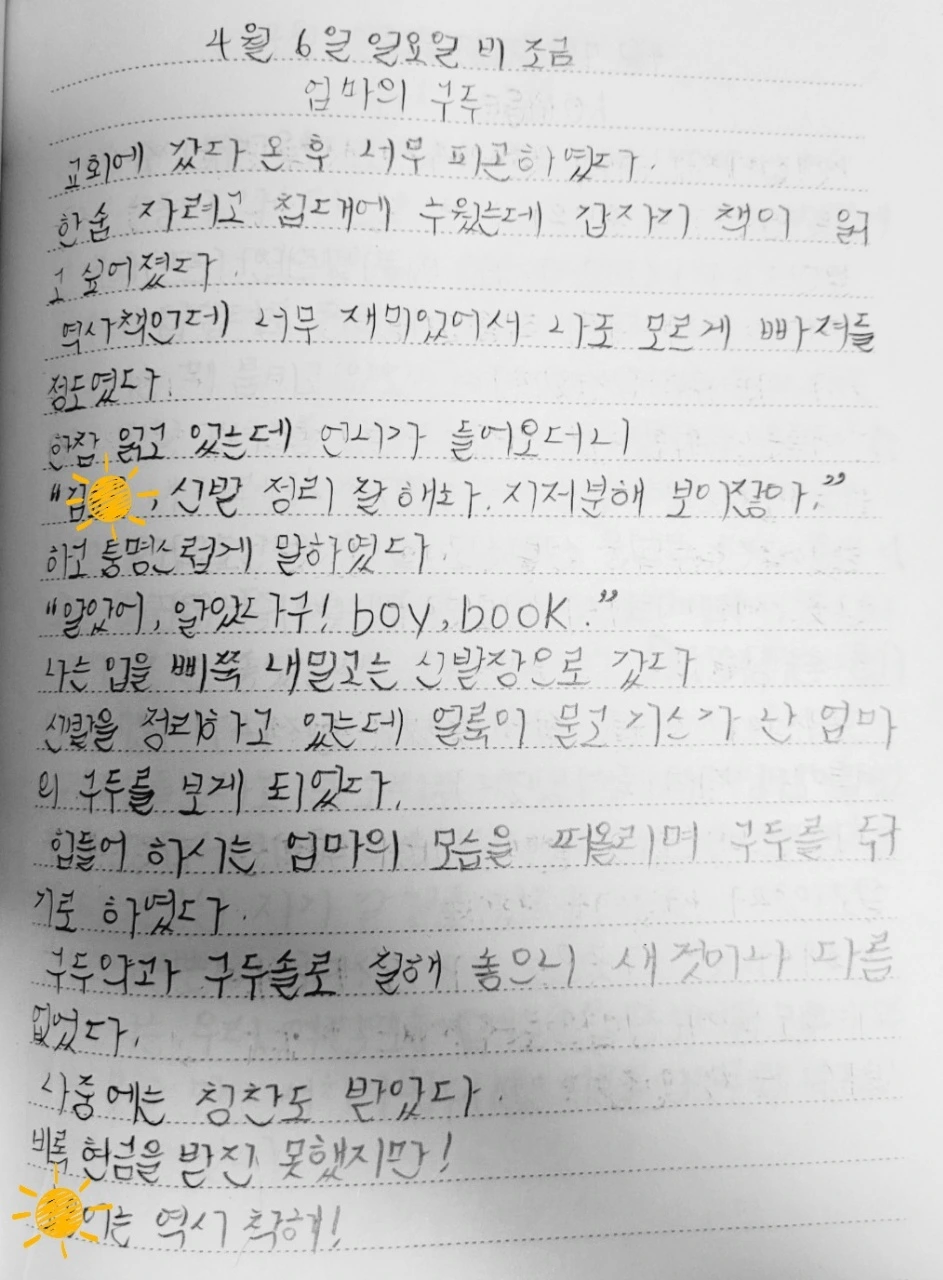 4월 6일 일요일 비 조금
엄마의 구두
교회에 갔다 온 후 너무 피곤하였다.
한숨 자려고 침대에 누웠는데 갑자기 책이 읽
고 싶어졌다.
역사책인데 너무 재미있어서 나도 모르게 빠져들
정도였다.
한참 읽고 있는데 언니가 들어오더니
"김 , 신발 정리 잘 해놔. 지저분해 보이잖아."
하고 퉁명스럽게 말하였다.
"알았어, 알았다구! boy, book."
나는 입을 삐쭉 내밀고는 신발장으로 갔다
신발을 정리하고 있는데 얼룩이 묻고 기스가 난 엄마
의 구두를 보게 되었다.
힘들어 하시는 엄마의 모습을 떠올리며 구두를 닦
기로 하였다.
구두약과 구두솔로 칠해 놓으니 새 것이나 다름
없었다.
나중에는 칭찬도 받았다.
비록 현금을 받진 못했지만!
이는 역시 착해!